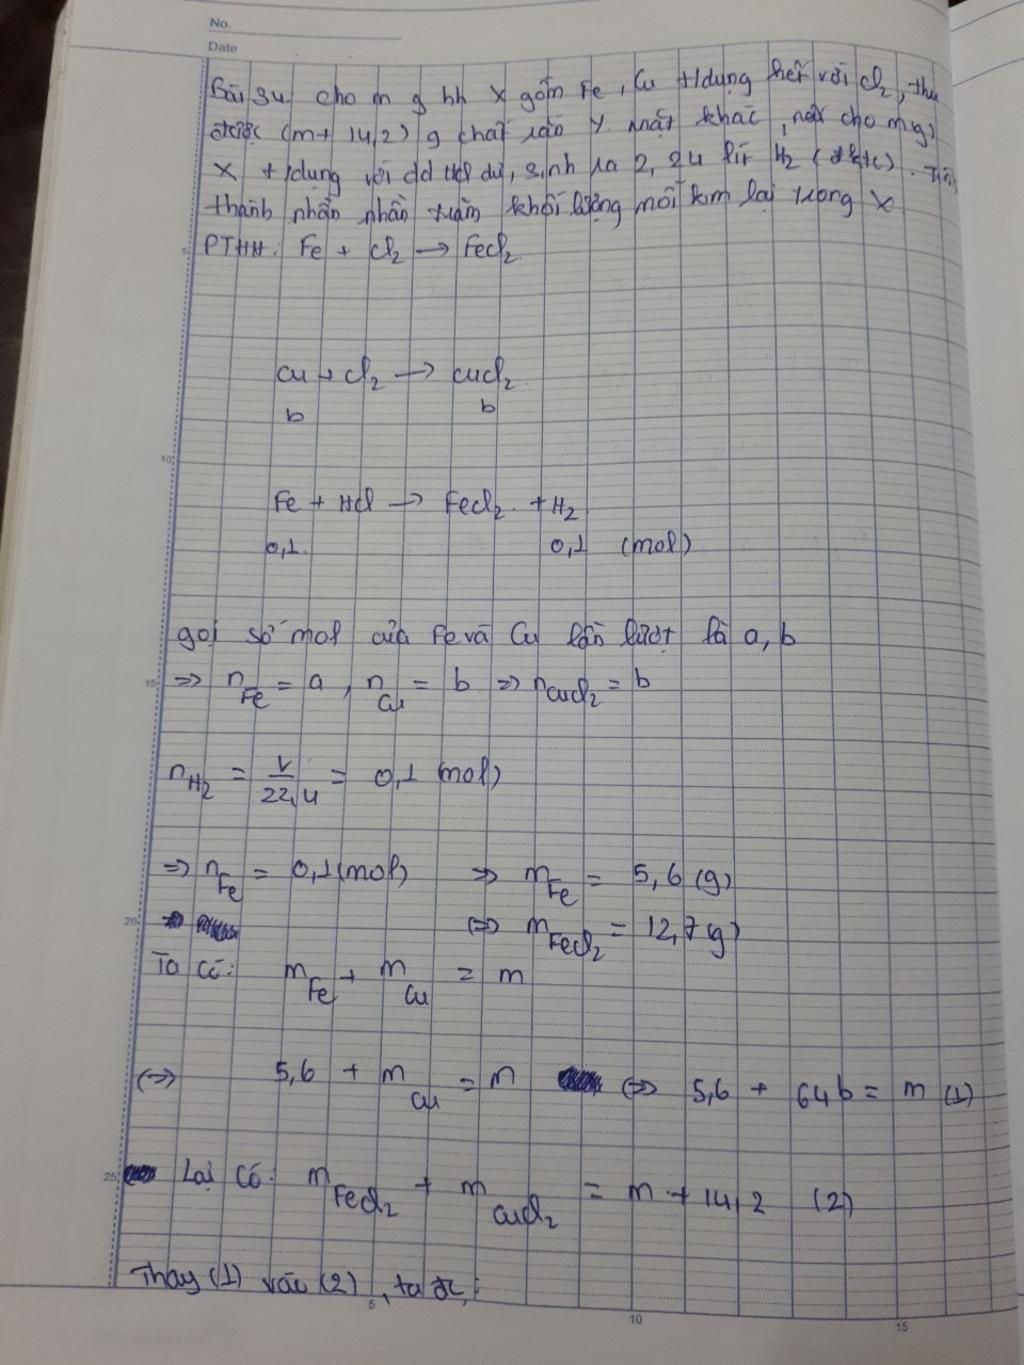 No.
Date
Bài 34 cho m g hh X gồm Fe, Cu t/dụng hết với Cl2, thu
được (m + 14,2) g chất rắn Y. Mặt khác, nếu cho m g
X t/dụng với dd HCl dư, sinh ra 2,24 lít H2 (đktc). Tính
thành phần phần trăm khối lượng mỗi kim loại trong X
PTHH: Fe + Cl2 → FeCl2
5
Cu + Cl2 → CuCl2
b b
10
Fe + HCl → FeCl2 + H2
0,1 0,1 (mol)
gọi số mol của Fe và Cu lần lượt là a, b
15 => nFe = a, nCu = b => nCuCl2 = b
nH2 = V/22,4 = 0,1 (mol)
=> nFe = 0,1 (mol) => mFe = 5,6 (g)
20 (=> mFeCl2 = 12,7 g)
Ta có: mFe + mCu = m
(=> 5,6 + mCu = m (=> 5,6 + 64b = m (1)
25 Lại có: mFeCl2 + mCuCl2 = m + 14,2 (2)
Thay (1) vào (2), ta đc:
5 10 15